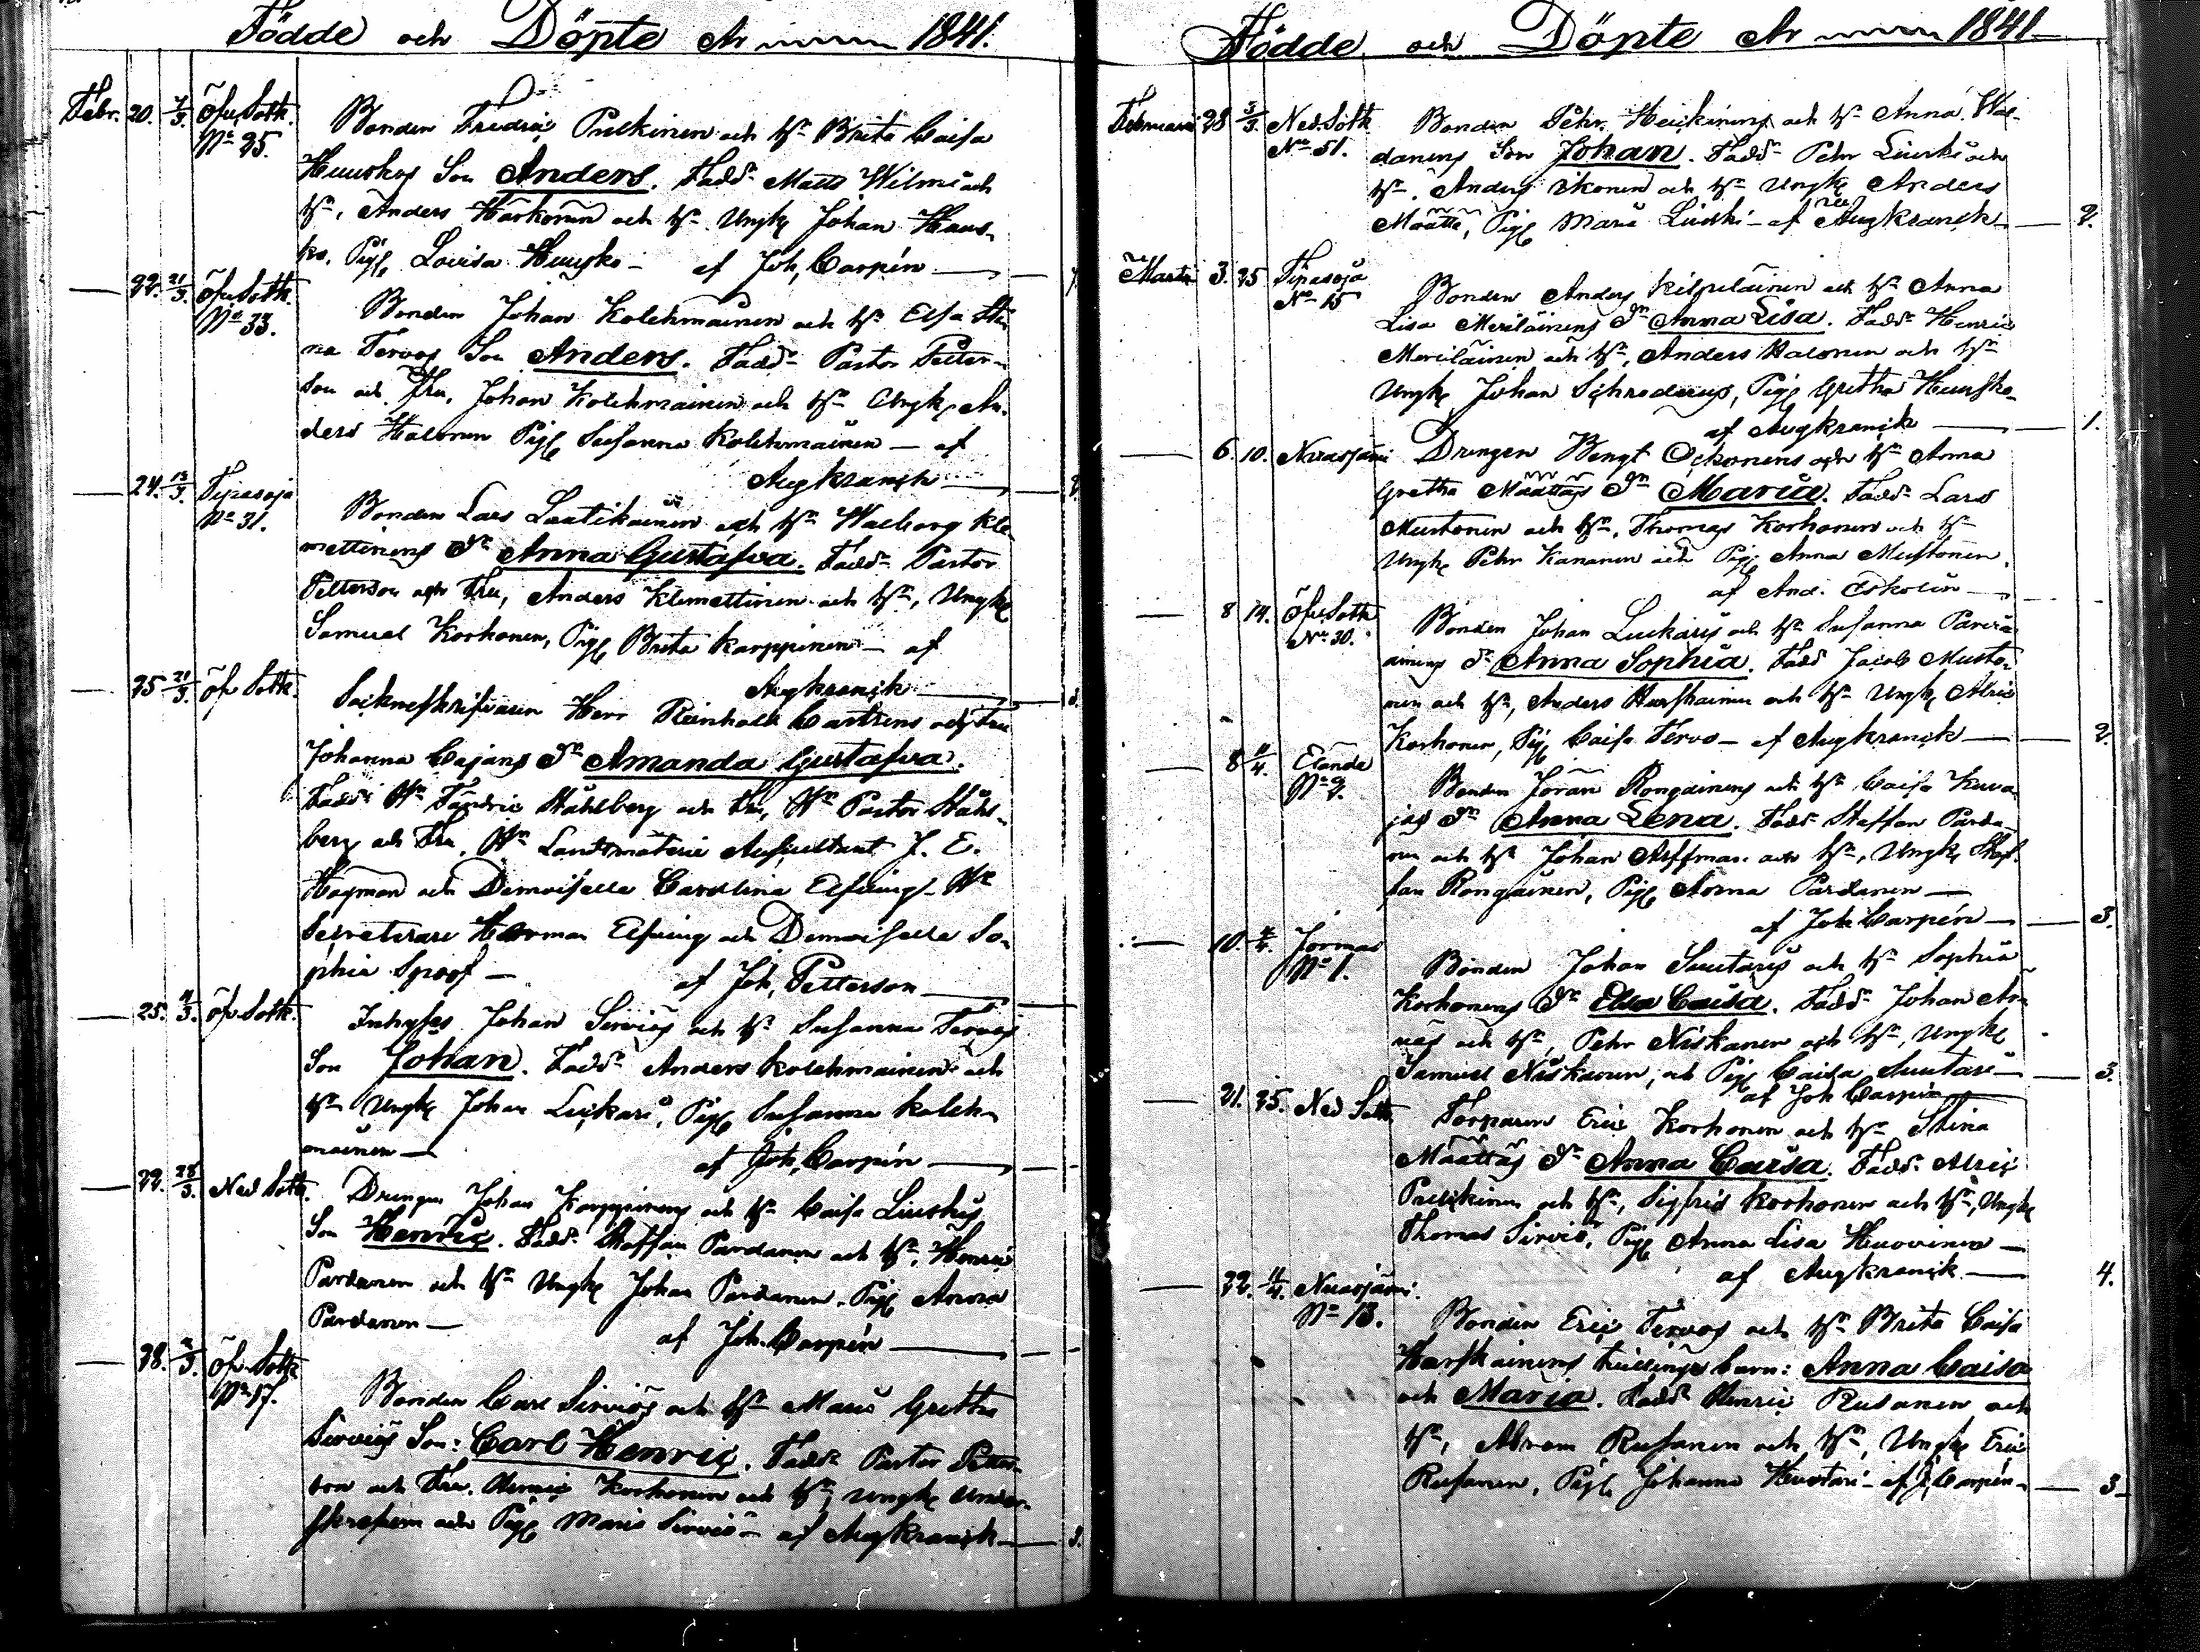 Födde och Döpte År 1841.
Febr. 20. 7/3. Öfv. Sotk. Bonden Fredric Pulkinen och h. Brita Caisa
No 25. Huuskos Son Anders. Fadd. Matts Wilmi och
h., Anders Härkönen och h. Ungk. Johan Huus-
ko, Pig. Lovisa Huusko — af Joh. Carpén —
— 22. 21/3. Öfv. Sotk. Bonden Johan Kolehmainen och h. Elsa Sti-
No 33. na Tervos Son Anders. Fadd. Pastor Petter-
son och Fru, Johan Kolehmainen och h. Ungk. An-
ders Halonen Pig. Susanna Kolehmainen — af
Aug. Kranck —
— 24. 13/3. Tipasoja Bonden Lars Lautikainen och h. Walborg Kle-
No 31. mettinens Dr Anna Gustafva. Fadd. Pastor
Petterson och Fru, Anders Klemettinen och h., Ungk.
Samuel Korhonen, Pig. Brita Karppinen — af
Aug. Kranck —
— 25 21/3. Öfv. Sotk. Socknskrifvaren Herr Reinhold Castrens och Fru
Johanna Cajans Dr Amanda Gustafva.
Fadd. Hr Ståhlberg och Fru, Hr Pastor Ståhl-
berg och Fru, Hr Landtmäteri Auscultant J. E.
Hagman och Demoiselle Carolina Elfving. Hr
Secreterare Herman Elfving och Demoiselle So-
phia Spoof — af Joh. Petterson —
— 25. 4/3. Öfv. Sotk. Inhyses Johan Serviös och h. Susanna Tervos
Son Johan. Fadd. Anders Kolehmainen och
h. Ungk. Johan Luckari, Pig. Susanna Koleh-
mainen — af Joh. Carpén —
— 22. 28/3. Ned Sotk. Drengen Johan Karppinens och h. Caisa Liuskis
Son Henric. Fadd. Staffan Pardanen och h., Henric
Pardanen och h. Ungk. Johan Pardanen. Pig. Anna
Pardanen — af Joh. Carpén —
— 28. 2/3. Öfv. Sotk Bonden Carl Serviös och h. Maria Gretha
No 17. Serviös Son: Carl Henric. Fadd. Pastor Petter-
son och Fru, Henric Korhonen och h., Ungk. Under-
skrefvem och Pig. Maria Serviö — af Aug. Kranck —
Födde och Döpte År 1841
Februari 28 3/3. Ned. Sotk Bonden Pehr Heickinens och h. Anna Har-
No 51. danens Son Johan. Fadd. Pehr Liuski och
h. Anders Ikonen och h. Ungk. Anders
Määttä, Pig. Maria Liuski — af Aug. Kranck — 2.
Martii 3. 25 Tipasoja Bonden Anders Kilpeläinen och h. Anna
No 15 Lisa Meriläinens Dr Anna Lisa. Fadd. Henric
Meriläinen och h., Anders Halonen och h.
Ungk. Johan Schroderus, Pig. Gretha Huusko
af Aug. Kranck — 1.
— 6. 10. Nuasjärvi Drengen Bengt Ockonens och h. Anna
Gretha Määttäs Dr Maria. Fadd. Lars
Mustonen och h., Thomas Korhonen och h.
Ungk. Pehr Kananen och Pig. Anna Mustonen.
af And. Eskolin —
— 8 14. Öfv. Sotk Bonden Johan Luckaris och h. Susanna Parviä-
No 30. ainens Dr Anna Sophia. Fadd Jacob Musto-
nen och h., Anders Hurskainen och h. Ungk. Alric
Korhonen, Pig. Caisa Tervo — af Aug. Kranck — 2.
— 8 11/4. Elända Bonden Jöran Rongainens och h. Caisa Kuva-
No 9. jas Dr Anna Lena. Fadd. Staffan Parda-
nen och h. Johan Arffman och h., Ungk. Staf-
fan Rongainen, Pig. Anna Pardanen —
af Joh Carpén — 3.
— 10. 4/4. Jormas Bonden Johan Suutaris och h. Sophia
No 1. Korhonens Dr Elsa Caisa. Fadd. Johan
och h., Pehr Niskanen och h., Ungk.
Samuel Niskanen, och Pig. Caisa Suutari — 3.
af Joh Carpén
— 21. 25. Ned Sotk. Torparen Eric Korhonen och h. Stina
Määttäs Dr Anna Caisa. Fadd. Alric
Pulckinen och h., Sigfrid Korhonen och h., Ungk.
Thomas Serviö, Pig. Anna Lisa Huovinen —
af Aug. Kranck. — 4.
— 22. 11/4. Nuasjärvi. Bonden Eric Tervos och h. Brita Caisa
No 13. Hurskainens tvillinge barn: Anna Caisa
och Maria. Fadd. Henric Rusanen och
h., Abram Rusanen och h., Ungk. Eric
Rusanen, Pig. Johanna Huotari — af J. Carpén — 3